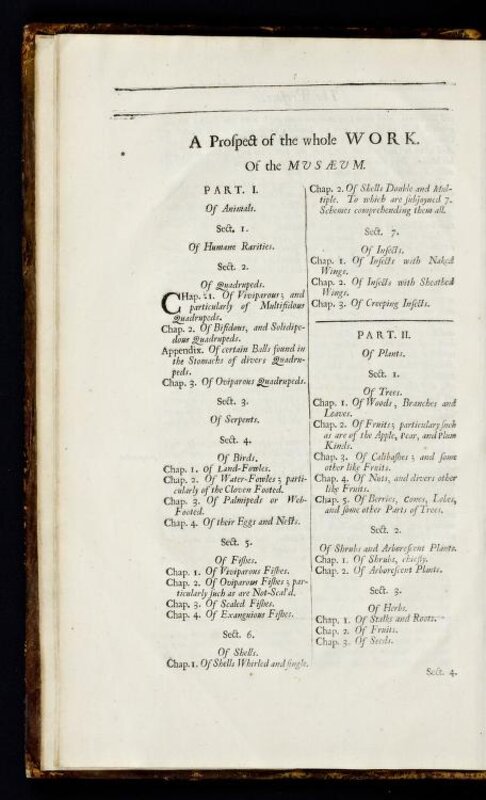 A Proſpect of the whole WORK.
Of the MVSÆVM.
PART. I.
Of Animals.
Sect. 1.
Of Humane Rarities.
Sect. 2.
Of Quadrupeds.
CHap. 1. Of Viviparous; and
particularly of Multifidous
Quadrupeds.
Chap. 2. Of Bifidous, and Solidipe-
dous Quadrupeds.
Appendix. Of certain Balls found in
the Stomachs of divers Quadru-
peds.
Chap. 3. Of Oviparous Quadrupeds.
Sect. 3.
Of Serpents.
Sect. 4.
Of Birds.
Chap. 1. Of Land-Fowles.
Chap. 2. Of Water-Fowles; parti-
cularly of the Cloven Footed.
Chap. 3. Of Palmipeds or Web-
Footed.
Chap. 4. Of their Eggs and Neſts.
Sect. 5.
Of Fiſhes.
Chap. 1. Of Viviparous Fiſhes.
Chap. 2. Of Oviparous Fiſhes; par-
ticularly ſuch as are Not-Scal'd.
Chap. 3. Of Scaled Fiſhes.
Chap. 4. Of Exanguious Fiſhes.
Sect. 6.
Of Shells.
Chap. 1. Of Shells Whirled and ſingle.
Chap. 2. Of Shells Double and Mul-
tiple. To which are ſubjoyned 7.
Schemes comprehending them all.
Sect. 7.
Of Inſects.
Chap. 1. Of Inſects with Naked
Wings.
Chap. 2. Of Inſects with Sheathed
Wings.
Chap. 3. Of Creeping Inſects.
PART. II.
Of Plants.
Sect. 1.
Of Trees.
Chap. 1. Of Woods, Branches and
Leaves.
Chap. 2. Of Fruits; particulary ſuch
as are of the Apple, Pear, and Plum
Kinds.
Chap. 3. Of Calibaſhes; and ſome
other like Fruits.
Chap. 4. Of Nuts, and divers other
like Fruits.
Chap. 5. Of Berries, Cones, Lobes,
and ſome other Parts of Trees.
Sect. 2.
Of Shrubs and Arboreſcent Plants.
Chap. 1. Of Shrubs, chiefly.
Chap. 2. Of Arboreſcent Plants.
Sect. 3.
Of Herbs.
Chap. 1. Of Stalks and Roots.
Chap. 2. Of Fruits.
Chap. 3. Of Seeds.
Sect. 4.